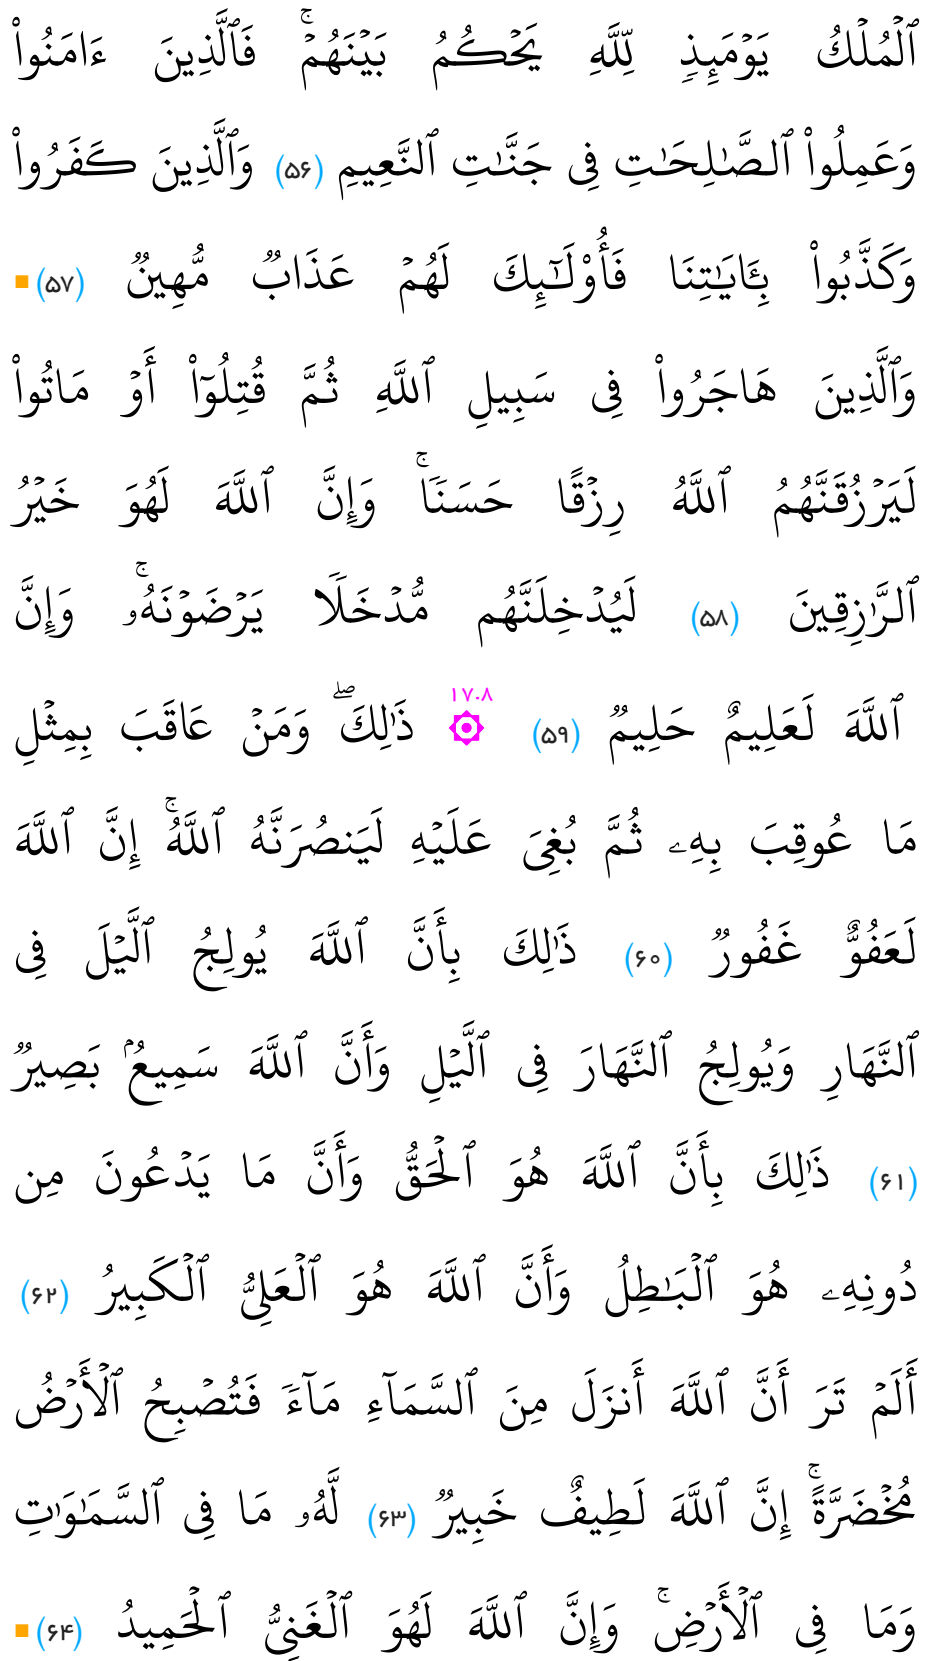 ٱلْمُلْكُ يَوْمَئِذٍ لِّلَّهِ يَحْكُمُ بَيْنَهُمْ ۚ فَٱلَّذِينَ ءَامَنُوا۟
وَعَمِلُوا۟ ٱلصَّـٰلِحَـٰتِ فِى جَنَّـٰتِ ٱلنَّعِيمِ (۵۶) وَٱلَّذِينَ كَفَرُوا۟
وَكَذَّبُوا۟ بِـَٔايَـٰتِنَا فَأُو۟لَـٰٓئِكَ لَهُمْ عَذَابٌ مُّهِينٌ (۵۷)
وَٱلَّذِينَ هَاجَرُوا۟ فِى سَبِيلِ ٱللَّهِ ثُمَّ قُتِلُوٓا۟ أَوْ مَاتُوا۟
لَيَرْزُقَنَّهُمُ ٱللَّهُ رِزْقًا حَسَنًا ۚ وَإِنَّ ٱللَّهَ لَهُوَ خَيْرُ
ٱلرَّٰزِقِينَ (۵۸) لَيُدْخِلَنَّهُم مُّدْخَلًا يَرْضَوْنَهُۥ ۚ وَإِنَّ
ٱللَّهَ لَعَلِيمٌ حَلِيمٌ (۵۹) ۞ ۱۷.۸ ذَٰلِكَ ۖ وَمَنْ عَاقَبَ بِمِثْلِ
مَا عُوقِبَ بِهِۦ ثُمَّ بُغِىَ عَلَيْهِ لَيَنصُرَنَّهُ ٱللَّهُ ۚ إِنَّ ٱللَّهَ
لَعَفُوٌّ غَفُورٌ (۶۰) ذَٰلِكَ بِأَنَّ ٱللَّهَ يُولِجُ ٱلَّيْلَ فِى
ٱلنَّهَارِ وَيُولِجُ ٱلنَّهَارَ فِى ٱلَّيْلِ وَأَنَّ ٱللَّهَ سَمِيعٌۢ بَصِيرٌ
(۶۱) ذَٰلِكَ بِأَنَّ ٱللَّهَ هُوَ ٱلْحَقُّ وَأَنَّ مَا يَدْعُونَ مِن
دُونِهِۦ هُوَ ٱلْبَـٰطِلُ وَأَنَّ ٱللَّهَ هُوَ ٱلْعَلِىُّ ٱلْكَبِيرُ (۶۲)
أَلَمْ تَرَ أَنَّ ٱللَّهَ أَنزَلَ مِنَ ٱلسَّمَآءِ مَآءً فَتُصْبِحُ ٱلْأَرْضُ
مُخْضَرَّةً ۚ إِنَّ ٱللَّهَ لَطِيفٌ خَبِيرٌ (۶۳) لَّهُۥ مَا فِى ٱلسَّمَـٰوَٰتِ
وَمَا فِى ٱلْأَرْضِ ۚ وَإِنَّ ٱللَّهَ لَهُوَ ٱلْغَنِىُّ ٱلْحَمِيدُ (۶۴)